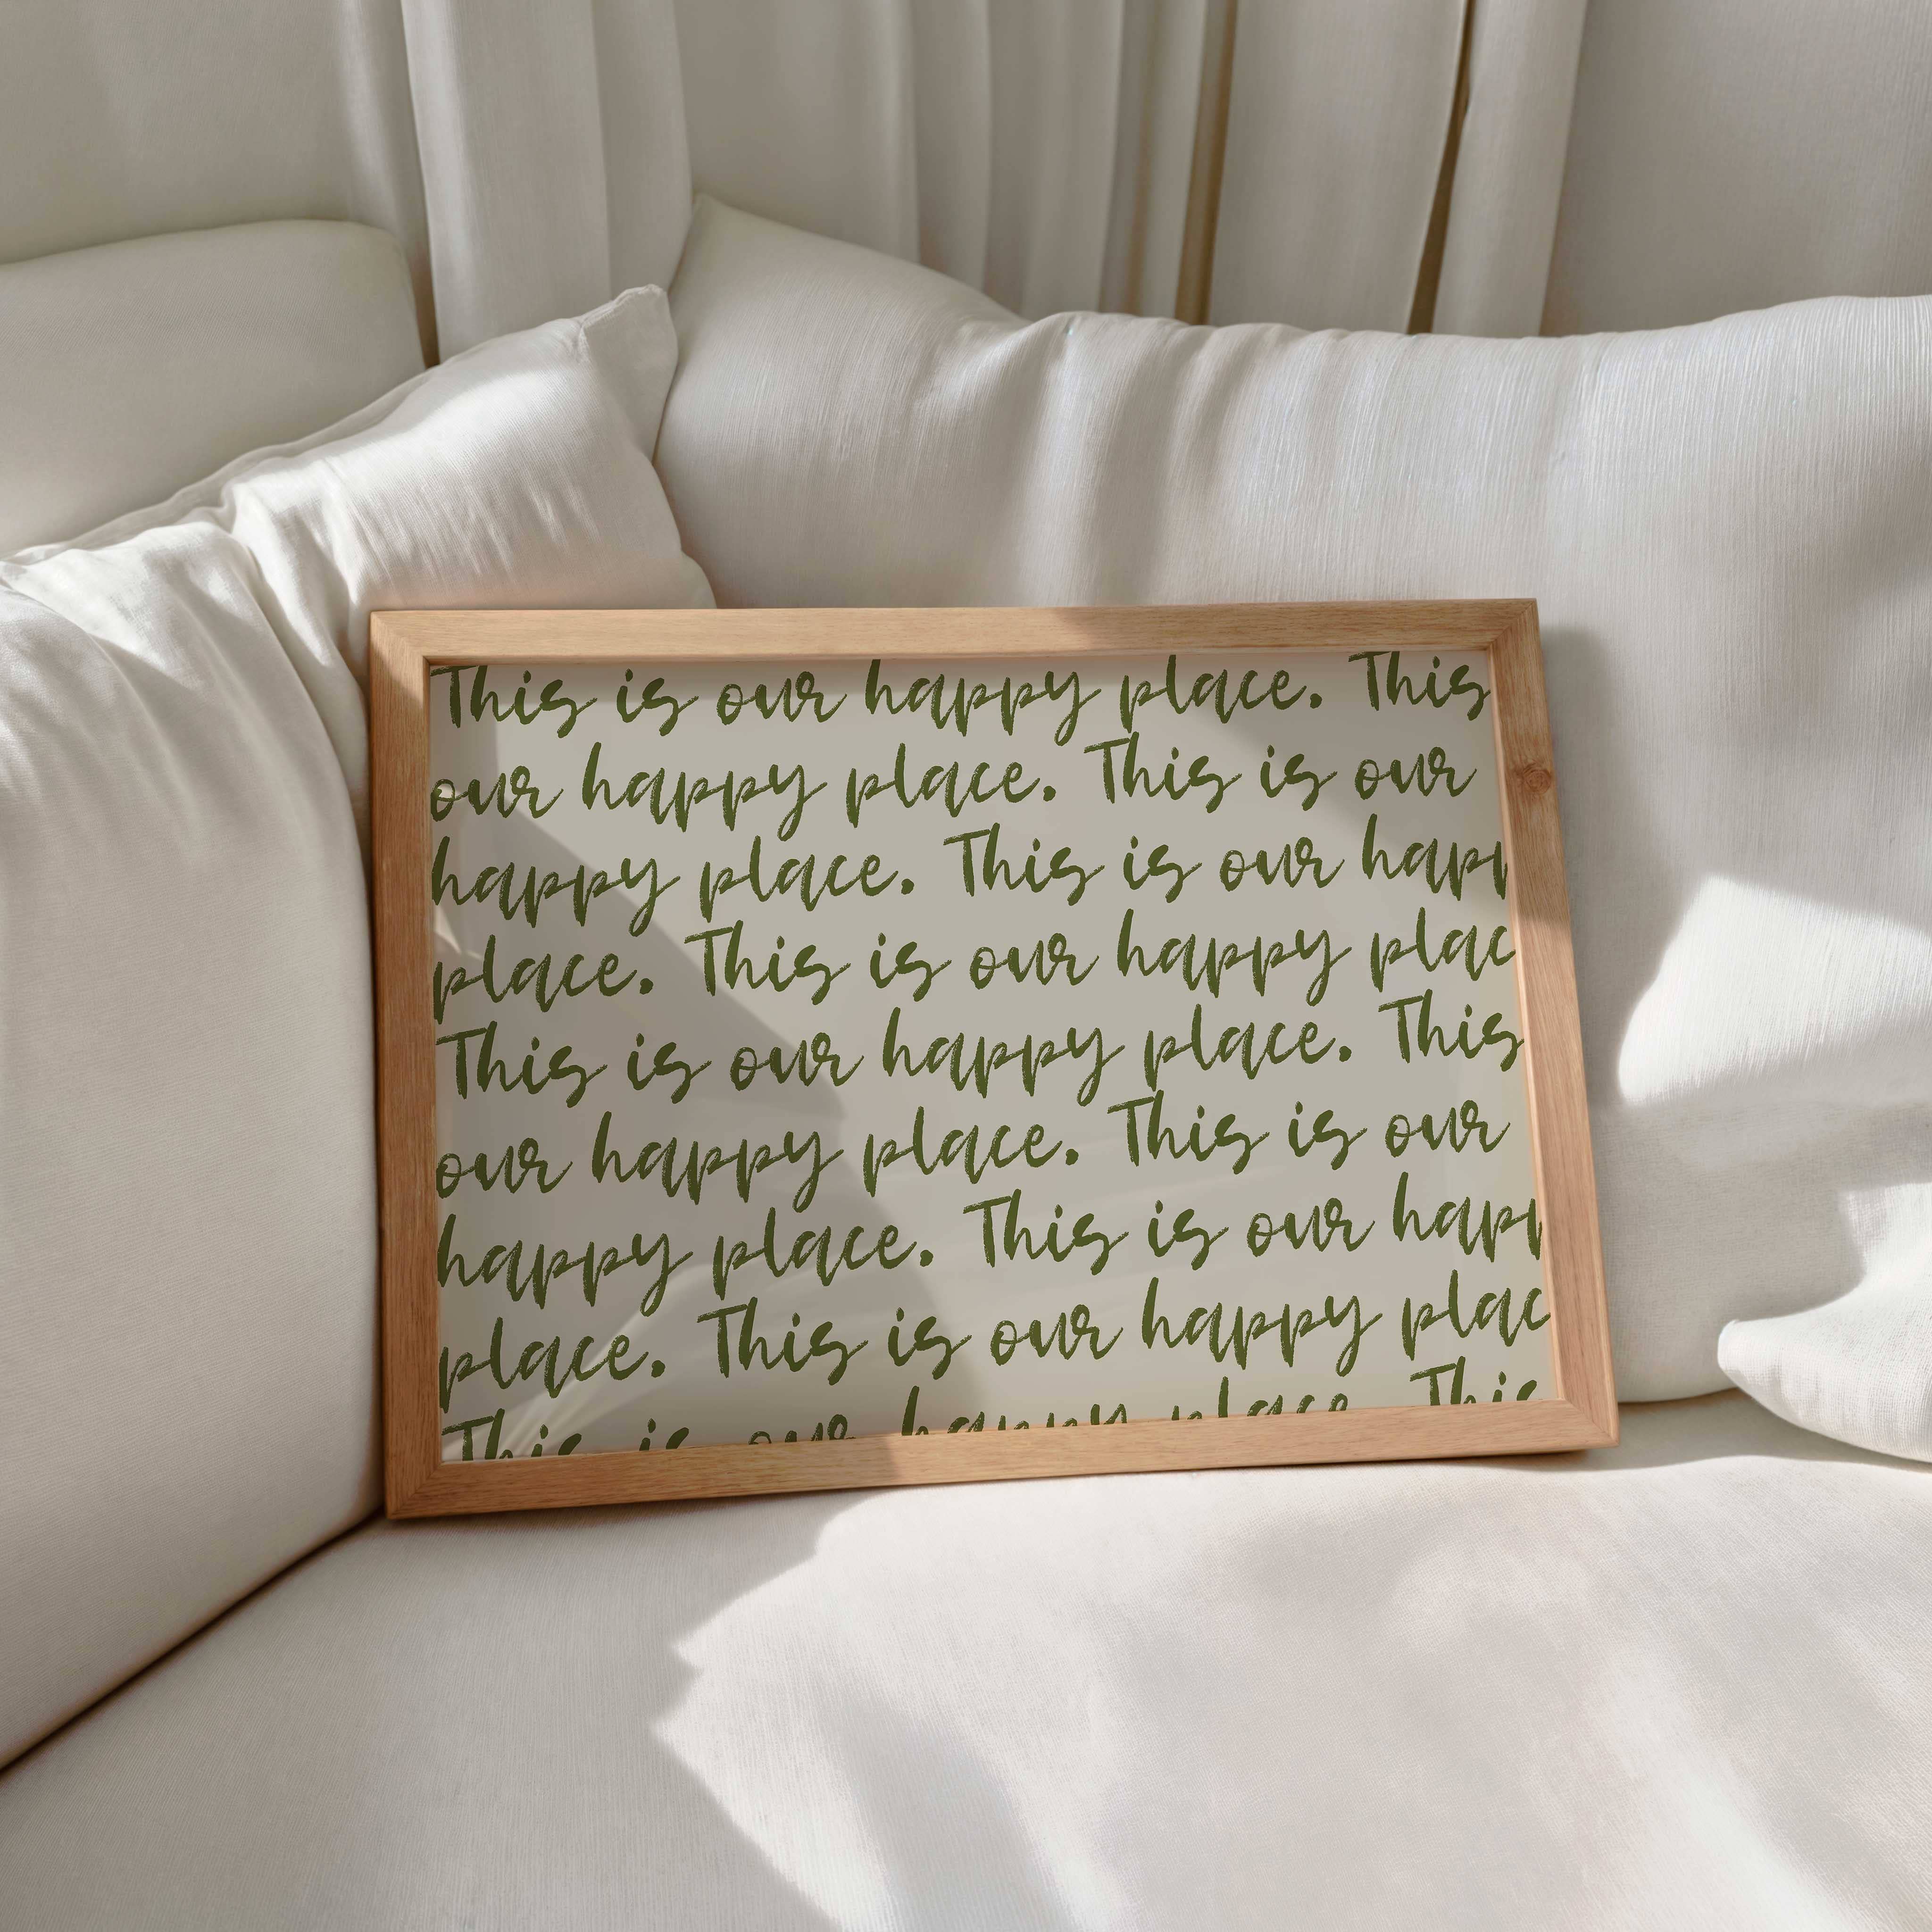 This is our happy place. This
our happy place. This is our
happy place. This is our happ
place. This is our happy plac
This is our happy place. This
our happy place. This is our
happy place. This is our happ
place. This is our happy plac
This is our happy place. This